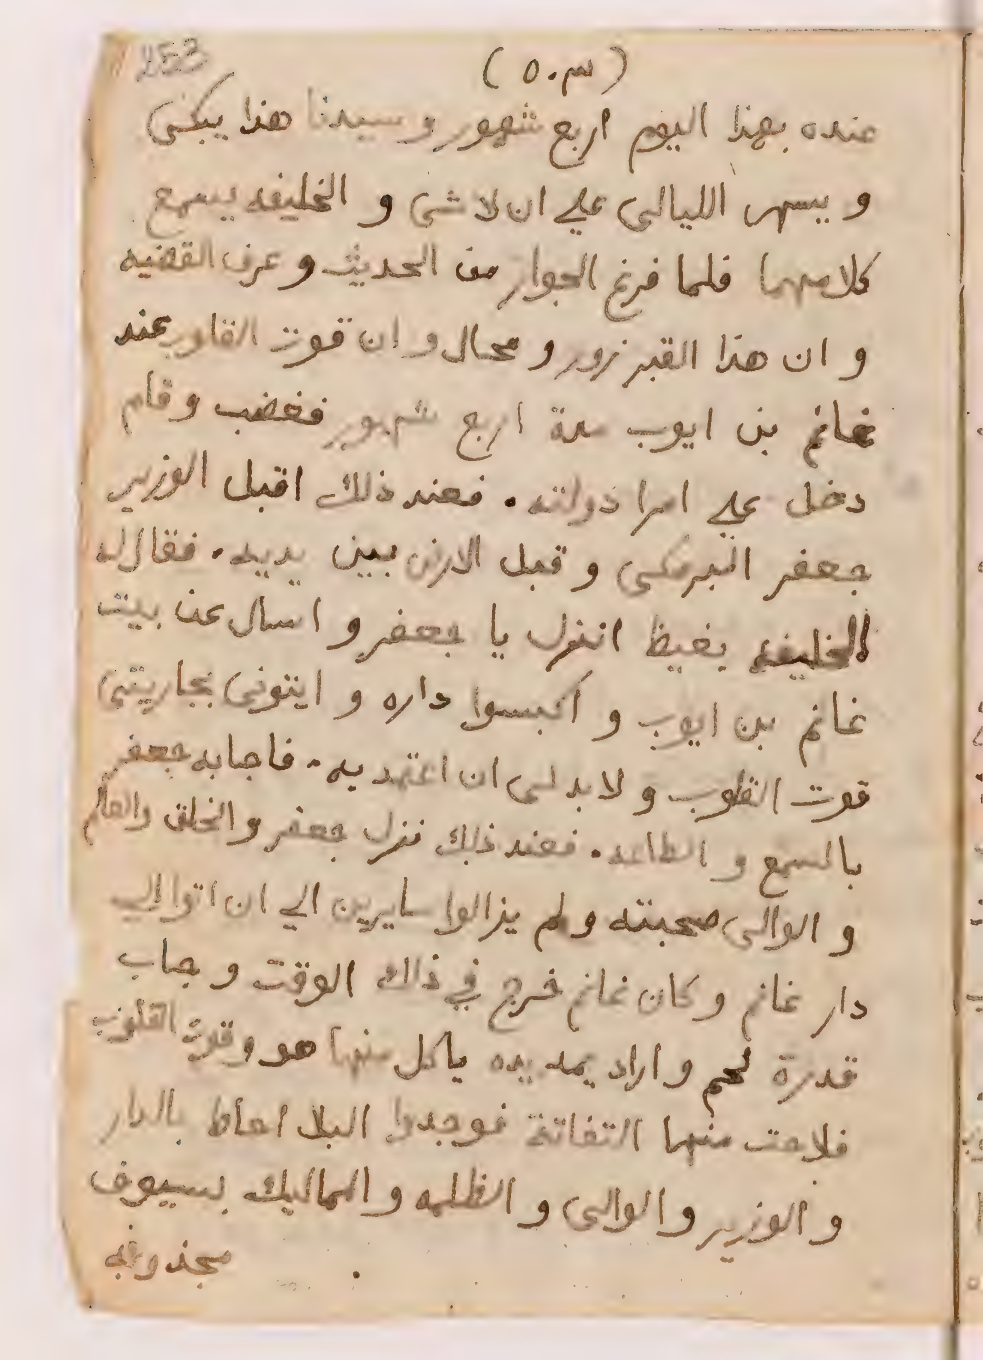 253
(٥٠٣)
عنده بهذا اليوم اربع شهور و سيدنا هذا يبكى
و يسهر الليالى علي ان لا شى و الخليفه يسمع
كلامهما فلما فرغ الجوار من الحديث و عرف القضيه
و ان هذا القبر زور و محال و ان قوت القلوب عند
غانم بن ايوب مدة اربع شهور فغضب و قام
دخل علي امرا دولته . فعند ذلك اقبل الوزير
جعفر البرمكى و قبل الارض بين يديه . فقال له
الخليفه بغيظ انزل يا جعفر و اسال عن بيت
غانم بن ايوب و اكبسوا داره و ايتونى بجاريتى
قوت القلوب و لا بد لى ان اعتمد به . فاجابه جعفر
بالسمع و الطاعه . فعند ذلك نزل جعفر و الخلق والعالم
و الوالى صحبته و لم يزالوا سايرين الي ان اتوا الي
دار غانم و كان غانم خرج في ذلك الوقت و جاب
قدرة لحم و اراد يمد يده ياكل منها هو و قوت القلوب
فلاحت منها التفاتة فوجدوا البلا احاط بالدار
و الوزير و الوالى و الظلمه و المماليك بسيوف
مجذوبه